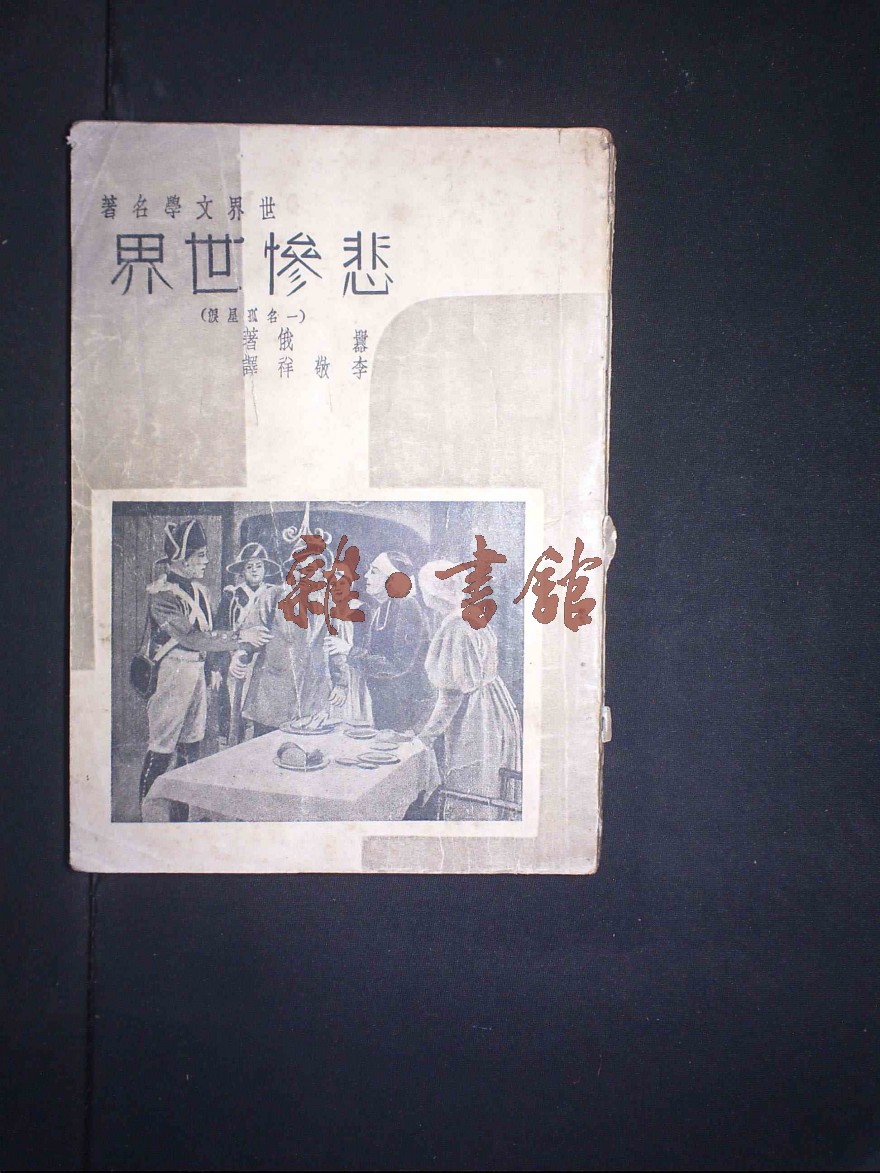 世界文學名著
悲慘世界
(一名孤星淚)
囂俄著
李敬祥譯
雜·書館